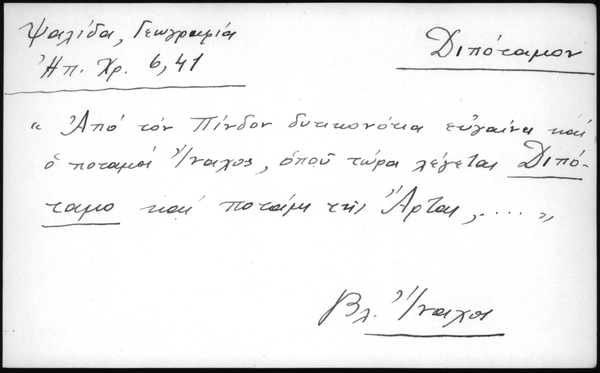 Ψαλίδα, Γεωγραφία
Ἠπ. Χρ. 6, 41
Διπόταμον
« Ἀπό τόν Πίνδον δυτικονότια εὐγαίνει καί
ὁ ποταμός Ἴναχος, ὁπού τώρα λέγεται Διπό-
ταμο καί ποτάμι τῆς Ἄρτας, .... »
Βλ. Ἴναχος